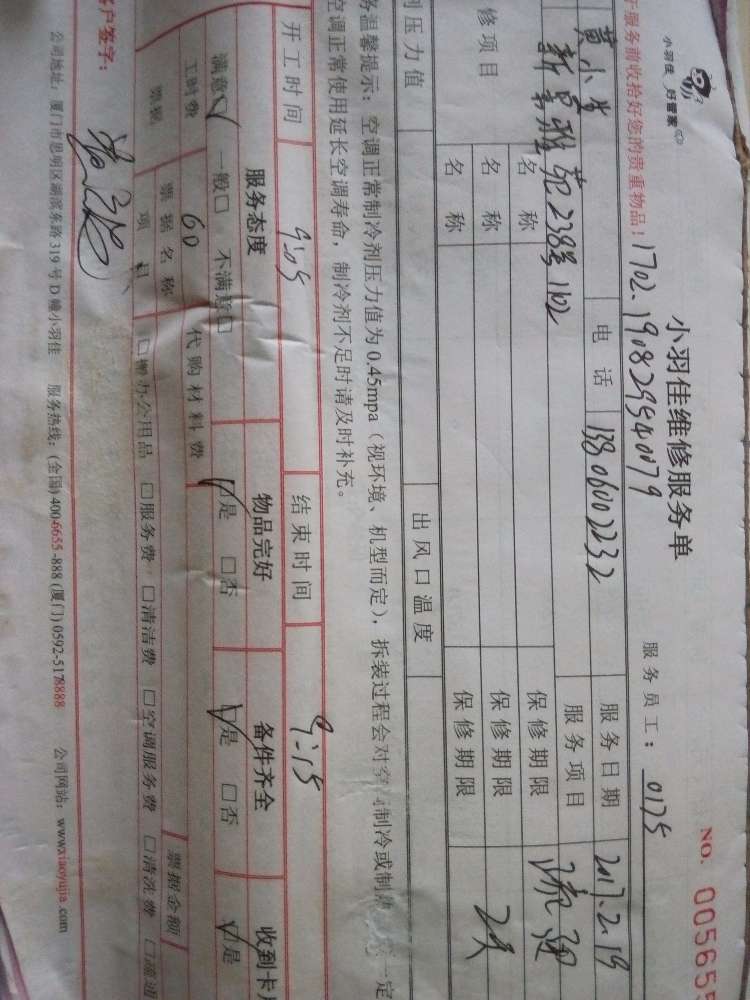 小羽佳 好管家
小羽佳维修服务单
NO. 005655
服务前收拾好您的贵重物品！
1702.190829540079
服务员工： 0175
黄小
电 话
13806002232
服 务 日 期
2017.2.19
服 务 项 目
修 项 目
名 称
保 修 期 限
名 称
保 修 期 限
2天
名 称
保 修 期 限
压 力 值
出 风 口 温 度
温馨提示：空调正常制冷剂压力值为 0.45mpa（视环境、机型而定），拆装过程会对空调制冷或制热
一定
空调正常使用延长空调寿命，制冷剂不足时请及时补充。
开 工 时 间
9:05
结 束 时 间
9:15
服务态度
物品完好
备件齐全
收到卡
满意☑ 一般□ 不满意□
☑是 □否
☑是 □否
☑是
工 时 费
60
代 购 材 料 费
票据
票 据 名 称
票据金额
项 目
□办公用品 □服务费 □清洁费 □空调服务费 □清洗费 □疏通
客户签字：
公司地址：厦门市思明区湖滨东路 319 号 D 幢小羽佳 服务热线：(全国) 400-6655-888 (厦门) 0592-5178888 公司网站：www.xiaoyujia.com